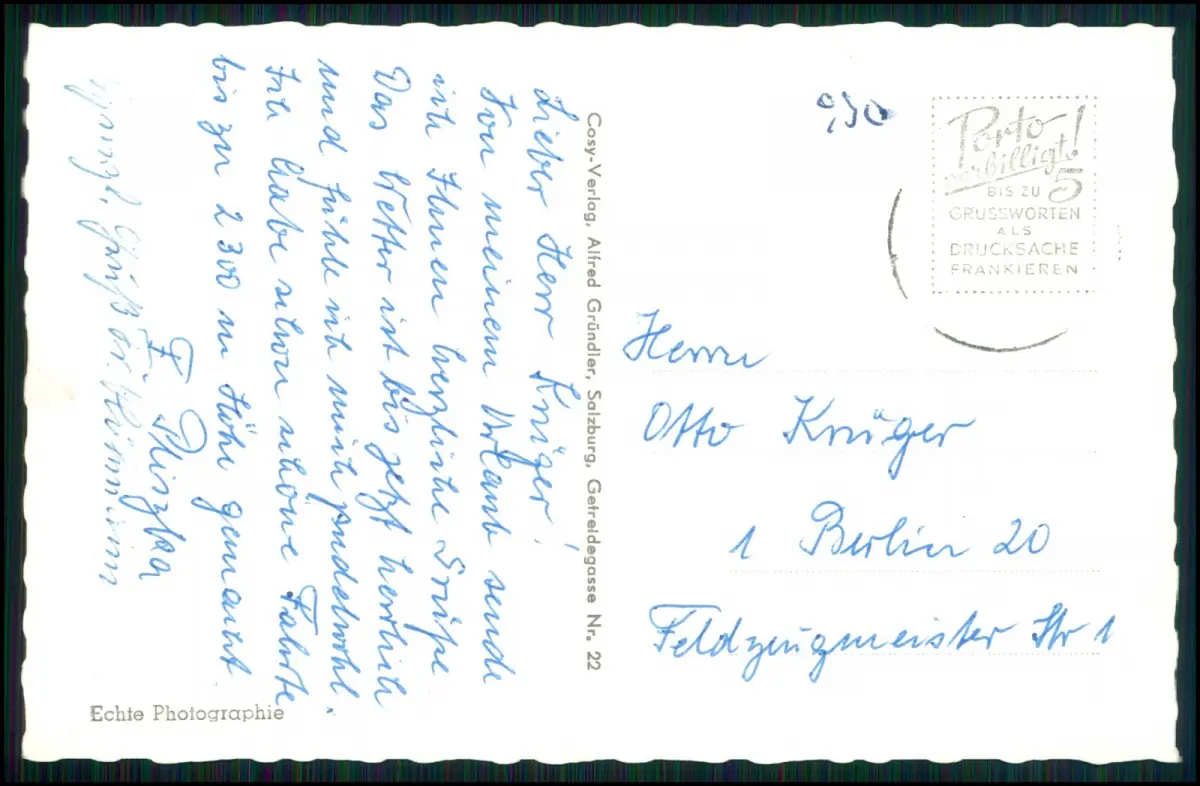 Lieber Herr Krüger!
Von meinem Urlaub sende
ich Ihnen herzliche Grüße.
Das Wetter ist bis jetzt herrlich
und fühle ich mich pudelwohl.
Ich habe schon schöne Fahrte
bis zu 2300 m Höhe gemacht.
F. Pliszka
Herzl. Grüß
Cosy-Verlag, Alfred Gründler, Salzburg, Getreidegasse Nr. 22
Echte Photographie
930
Porto
verbilligt!
BIS ZU 5
GRUSSWORTEN
ALS
DRUCKSACHE
FRANKIEREN
Herrn
Otto Krüger
1 Berlin 20
Feldzeugmeister Str 1